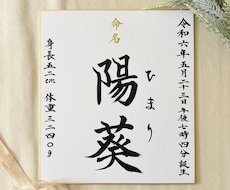 令和六年五月二十三日午後七時四分誕生
命名
陽葵
ひまり
身長五二㎝ 体重三二四〇g